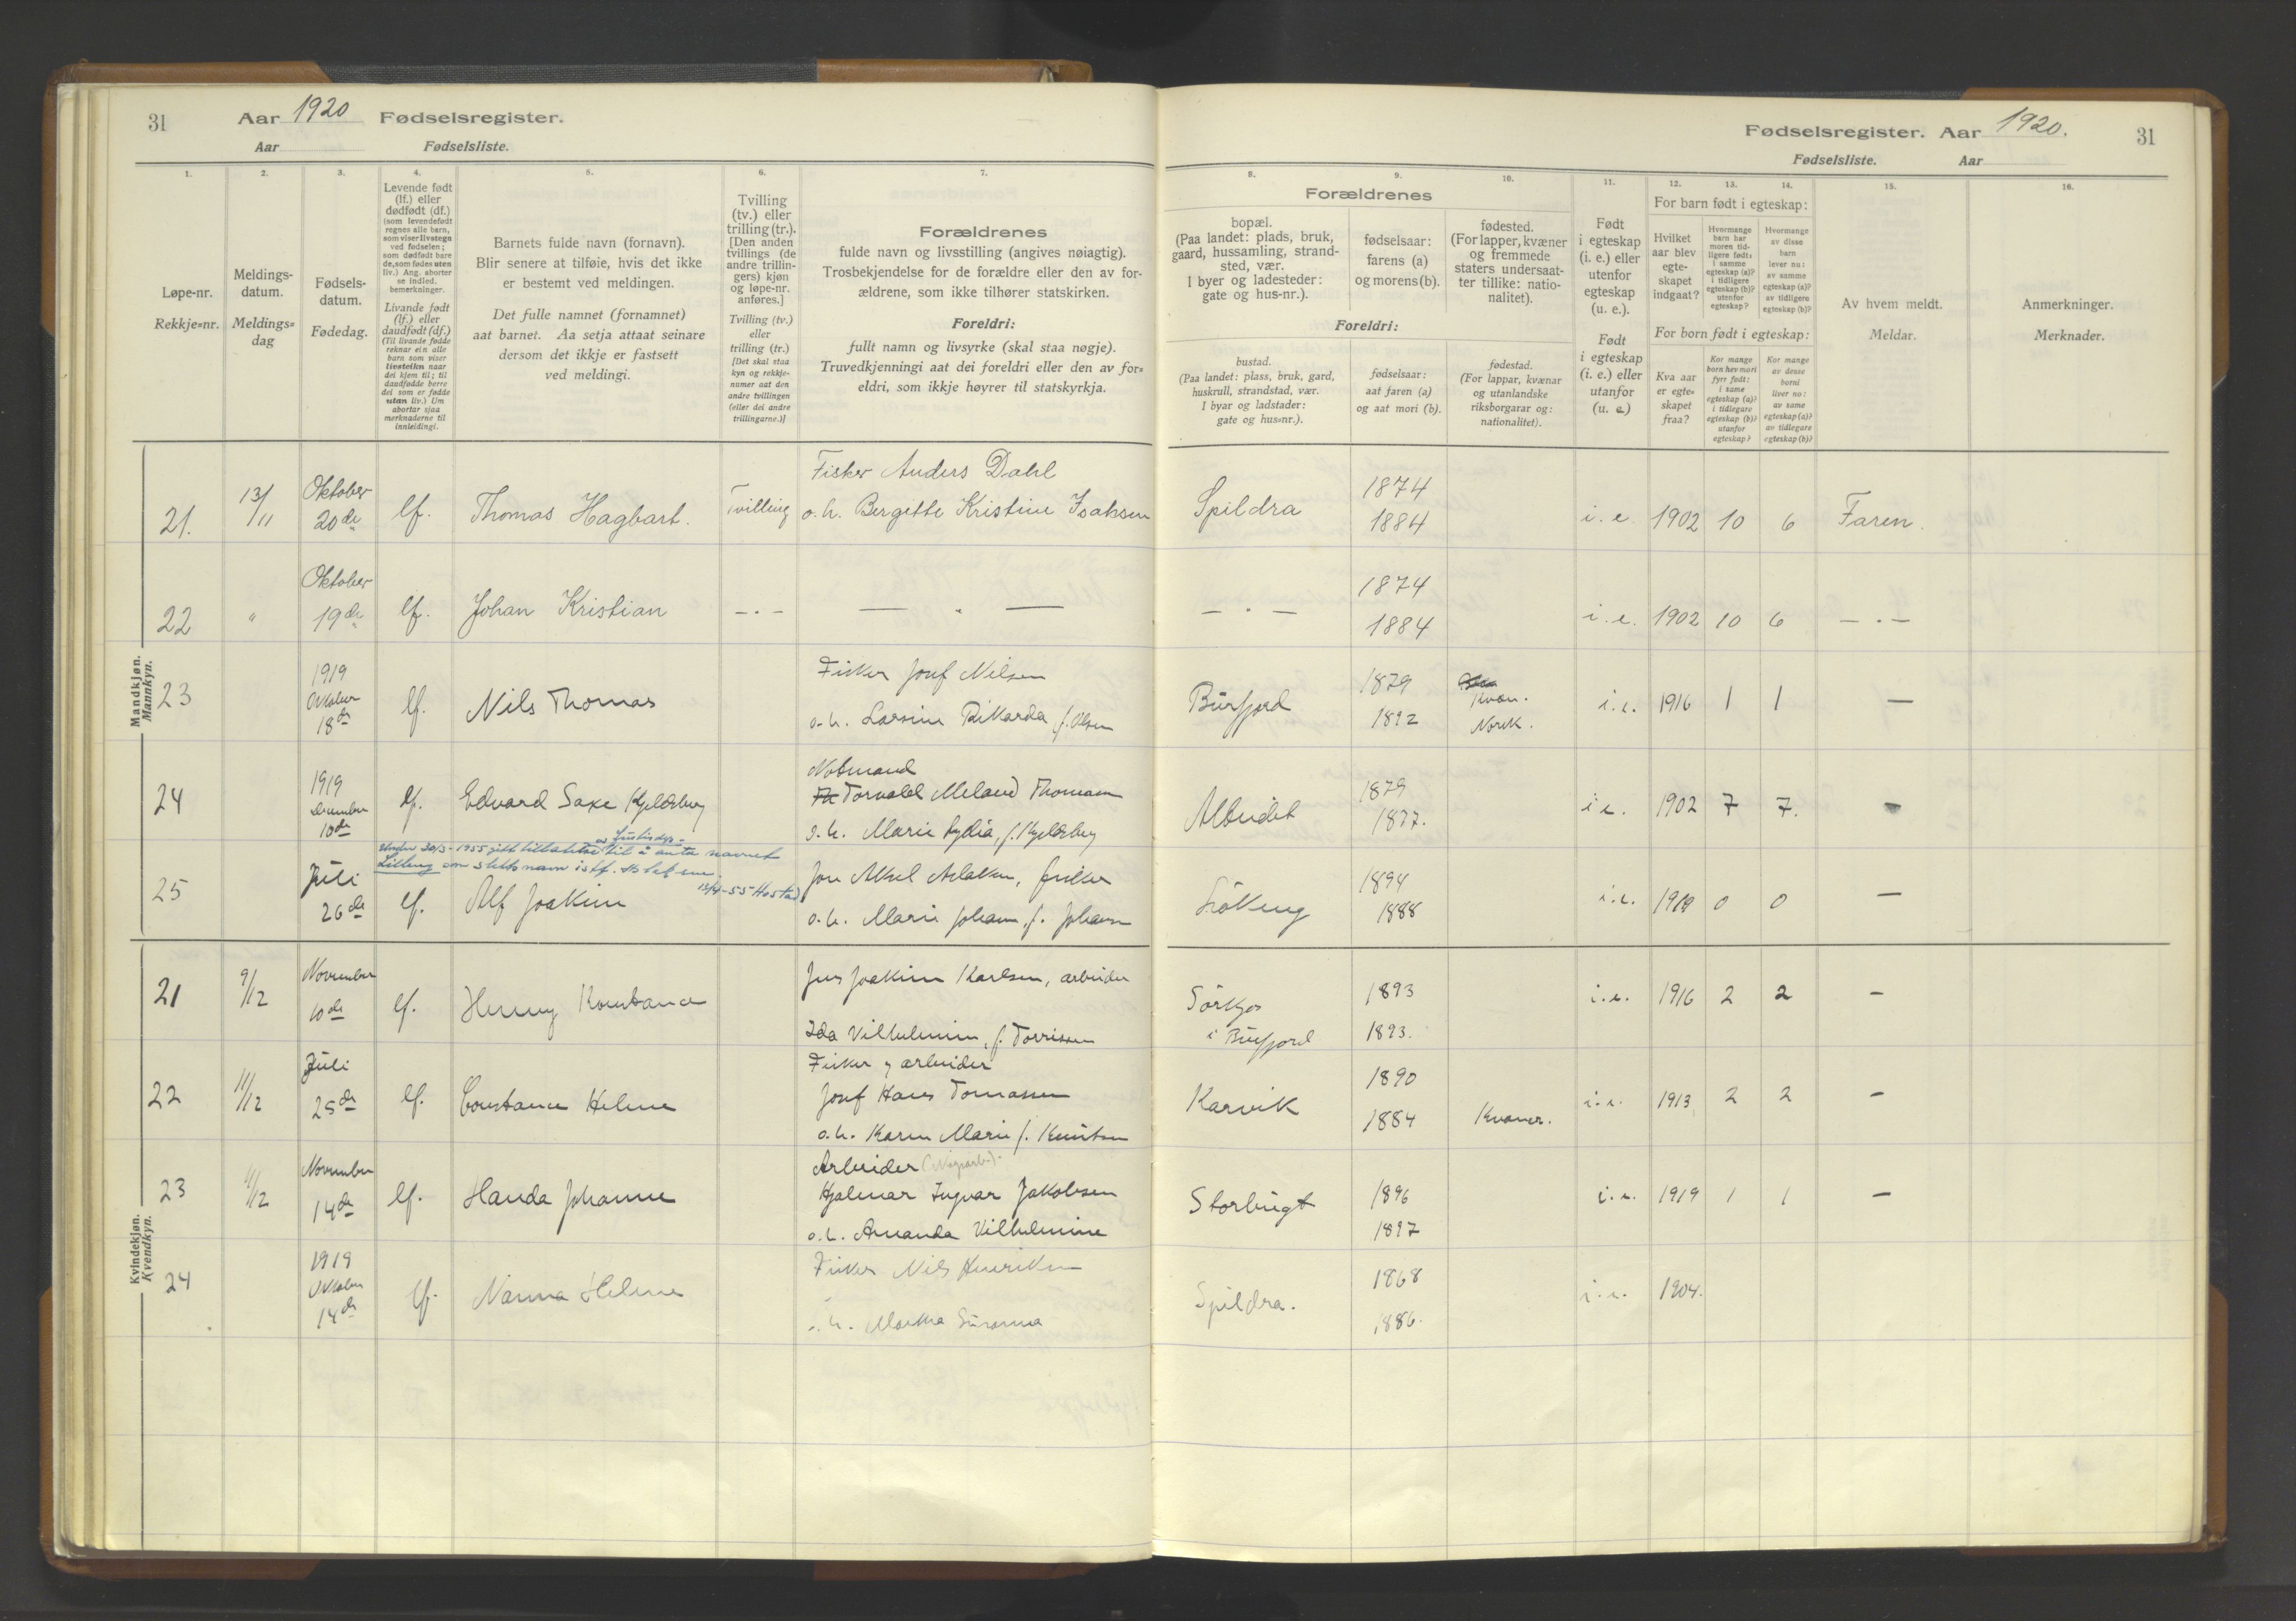 31 Aar 1920 Fødselsregister.
Aar Fødselsliste.
Fødselsregister. Aar 1920. 31
Fødselsliste. Aar
1. 2. 3. 4. 5. 6. 7.
Løpe-nr.
Rekkje=nr.
Meldings-
datum.
Meldings=
dag
Fødsels-
datum.
Fødedag.
Levende født
(lf.) eller
dødfødt (df.)
(som levendefødt
regnes alle barn,
som viser livstegn
ved fødselen;
som dødfødt bare
de, som fødes uten
liv.) Ang. aborter
se indled.
bemerkninger.
Livande født
(lf.) eller
daudfødt (df.)
(Til livande fødde
reknar ein alle
barn som viser
livsteikn naar
dei kjem til; til
daudfødde berre
dei som er fødde
utan liv.) Um
abortar sjaa
merknaderne til
innleidingi.
Barnets fulde navn (fornavn).
Blir senere at tilføie, hvis det ikke
er bestemt ved meldingen.
Det fulle namnet (fornamnet)
aat barnet. Aa setja attaat seinare
dersom det ikkje er fastsett
ved meldingi.
Tvilling
(tv.) eller
trilling (tr.).
[Den anden
tvillings (de
andre trillin-
gers) kjøn
og løpe-nr.
anføres.]
Tvilling (tv.)
eller
trilling (tr.)
[Det skal staa
kyn og rekkje-
numer aat den
andre tvillingen
(eller dei andre
trillingarne.)]
Forældrenes
fulde navn og livsstilling (angives nøiagtig).
Trosbekjendelse for de forældre eller den av for-
ældrene, som ikke tilhører statskirken.
Foreldri:
fullt namn og livsyrke (skal staa nøgje).
Truvedkjenningi aat dei foreldri eller den av for=
eldri, som ikkje høyrer til statskyrkja.
8. 9. 10. 11. 12. 13. 14. 15. 16.
Forældrenes
bopæl.
(Paa landet: plads, bruk,
gaard, hussamling, strand-
sted, vær.
I byer og ladesteder:
gate og hus-nr.).
fødselsaar:
farens (a)
og morens (b).
fødested.
(For lapper, kvæner
og fremmede
staters undersaat-
ter tillike: natio-
nalitet).
Foreldri:
bustad.
(Paa landet: plass, bruk, gard,
huskrull, strandstad, vær.
I byar og ladstader:
gate og hus=nr.).
fødselsaar:
aat faren (a)
og aat mori (b).
fødestad.
(For lappar, kvænar
og utanlandske
riksborgarar og:
nationalitet).
Født
i egteskap
(i. e.) eller
utenfor
egteskap
(u. e.).
Født
i egteskap
(i. e.) eller
utanfor
(u. e.)
For barn født i egteskap:
Hvilket
aar blev
egte-
skapet
indgaat?
Hvormange
barn har
moren tid-
ligere født:
i samme
egteskap (a)?
i tidligere
egteskap (b)?
utenfor
egteskap?
Hvormange
av disse
barn
lever nu:
av samme
egteskap (a)?
av tidligere
egteskap (b)?
For born født i egteskap:
Kva aar
er egte=
skapet
fraa?
Kor mange
born hev mori
fyrr født:
i same
egteskap (a)?
i tidlegare
egteskap (b)?
utanfor
egteskap?
Kor mange
av desse
borni
liver no:
av same
egteskap (a)?
av tidlegare
egteskap (b)?
Av hvem meldt.
Meldar.
Anmerkninger.
Merknader.
Mandkjøn.
Mannkyn.
Fisker Anders Dahl
21. 13/11 Oktober 20de lf. Thomas Hagbart. Tvilling o. h. Bergitte Kristine Isaksen Spildra 1874 1884 i. e. 1902 10 6 Faren.
22 " Oktober 19de lf. Johan Kristian — . — — " — — " — 1874 1884 i. e. 1902 10 6 — . —
Fisker Josef Nilsen
23 1919 Oktober 18de lf. Nils Thomas o. h. Larsine Rikarda, f. Olsen Burfjord 1879 1892 Kvæn. Norsk. i. e. 1916 1 1 —
Notmand
Torvald Meland Thomasen
24 1919 December 10de lf. Edvard Saxe Kjeldsberg o. h. Marie Lydia, f. Kjeldsberg Alteidet 1879 1877. i e. 1902 7 7. -
Under 30/3-1955 gitt tillatelse av Justisdep. til å anta navnet
som slektsnavn istf.
13/4-55 Hostad
Jon Aksel Aslaksen, fisker
25 Juli 26de lf. Alf Joakim o. h. Marie Johanne, f. Johansen 1894 1888 i. e. 1919 0 0 —
Kvindekjøn.
Kvendkyn.
Jens Joakim Karlsen, arbeider
21 9/12 November 10de lf. Henny Konstance Ida Vilhelmine, f. Torrissen i Burfjord 1893 1893. i. e. 1916 2 2 -
Fisker og arbeider
Josef Hans Tomassen
22 11/12 Juli 25de lf. Constance Helene o. h. Karen Marie f. Knutsen Karvik 1890 1884 Kvæner. i. e. 1913 2 2 -
Arbeider
Hjalmar Ingvar Jakobsen
23 11/12 November 14de lf. Handa Johanne o. h. Amanda Vilhelmine Storbugt 1896 1897 i. e. 1919 1 1 -
Fisker Nils Henriksen
24 1919 Oktober 14de lf. Nanna Helene o. h. Martha Susanna Spildra. 1868 1886. i. e. 1904.